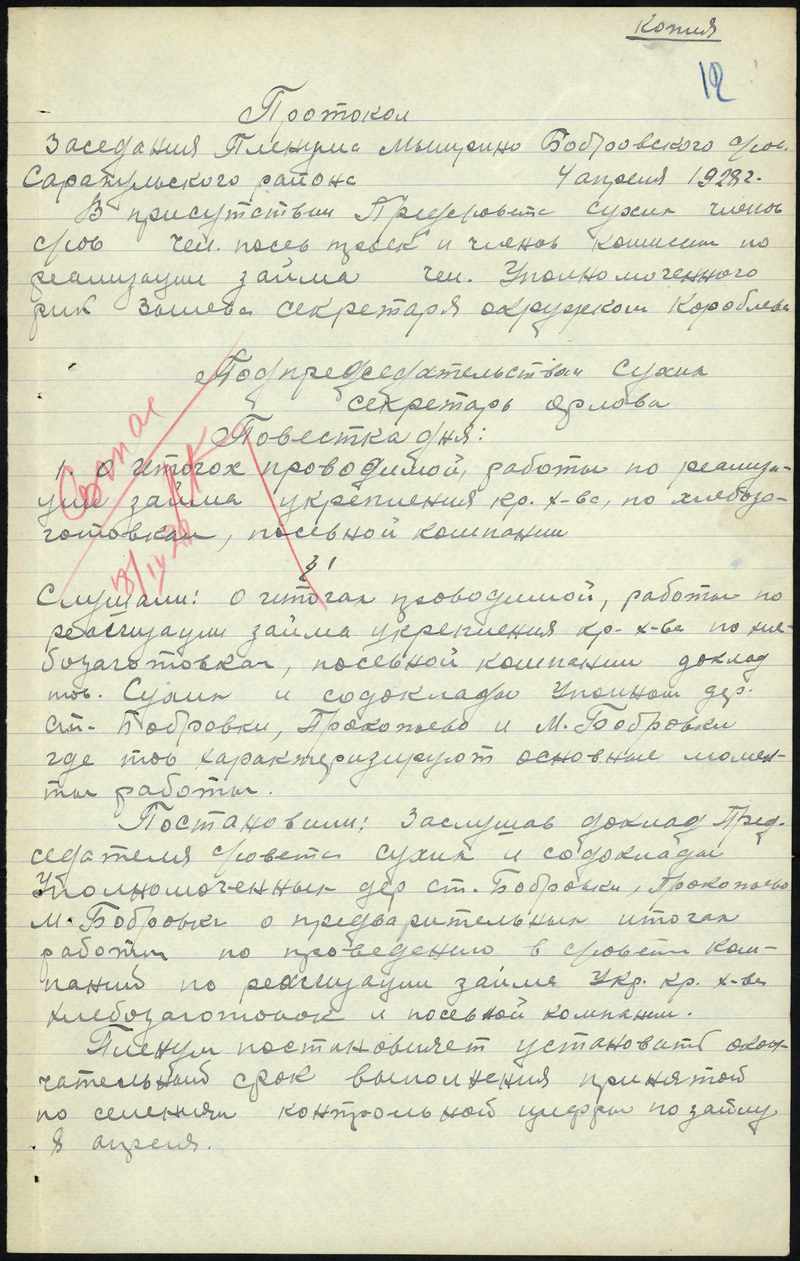 Копия
12
Протокол
Заседания Пленума Мыркино Бобровского с/сов.
Сарапульского района 4 апреля 1928 г.
В присутствии Предсовета Сухих членов
с/сов чел. посев троек и членов комиссии по
реализации займа чел. Уполномоченного
рик секретаря окружком Королева
Под председательствии Сухих
секретарь Орлова
Повестка дня:
1. О итогах проводимой, работы по реализа-
ции займа укрепления кр. х-ва, по хлебоза-
готовкам, посевной компании
18/IV 28
§ 1
Слушали: О итогах проводимой, работы по
реализации займа укрепления кр. х-ва по хле-
бозаготовках, посевной компании доклад
тов. Сухих и содоклады Уполном дер.
Ст. Бобровки, Прокопьево и М. Бобровки
где тов характеризируют основные момен-
ты работы.
Постановили: Заслушав доклад Пред-
седателя с/совета Сухих и содоклады
Уполномоченных дер ст. Бобровки, Прокопьево
М. Бобровка о предварительных итогах
работы по проведению в с/совете ком-
паний по реализации займа Укр. кр. х-ва
хлебозаготовок и посевной компании.
Пленум постановляет установить окон-
чательный срок выполнения принятой
по селениям контрольной цифры по займу
8 апреля.